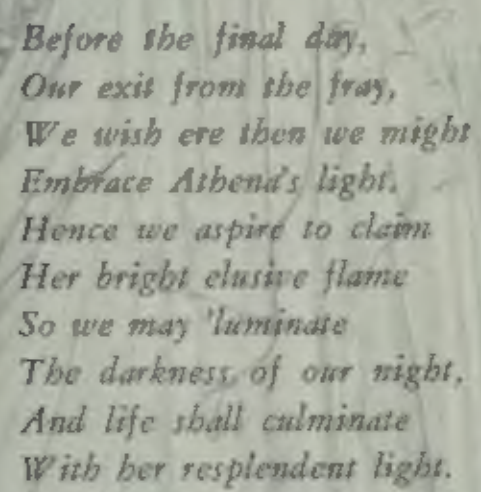 Before the final day,
Our exit from the fray,
We wish ere then we might
Embrace Athena's light.
Hence we aspire to claim
Her bright elusive flame
So we may 'luminate
The darkness of our night,
And life shall culminate
With her resplendent light.